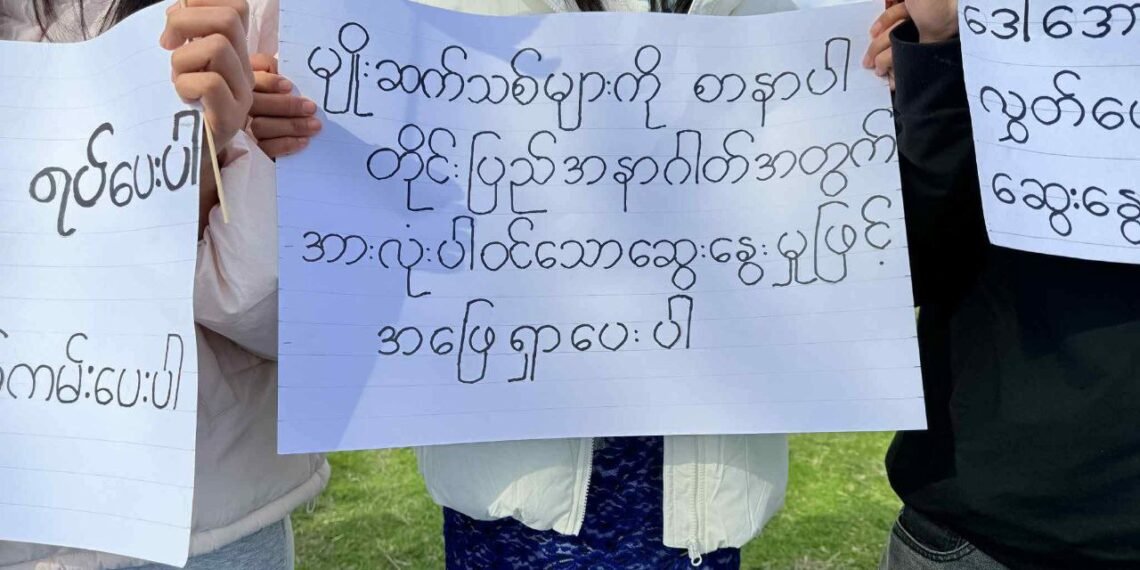 ရပ်ပေးပါ
ကမ်းပေးပါ
မျိုးဆက်သစ်များကို စာနာပါ
တိုင်းပြည်အနာဂါတ်အတွက်
အားလုံးပါဝင်သောဆွေးနွေးမှုဖြင့်
အဖြေရှာပေးပါ
ဒေါ်အော
လွှတ်ပေ
ဆွေးနွေ